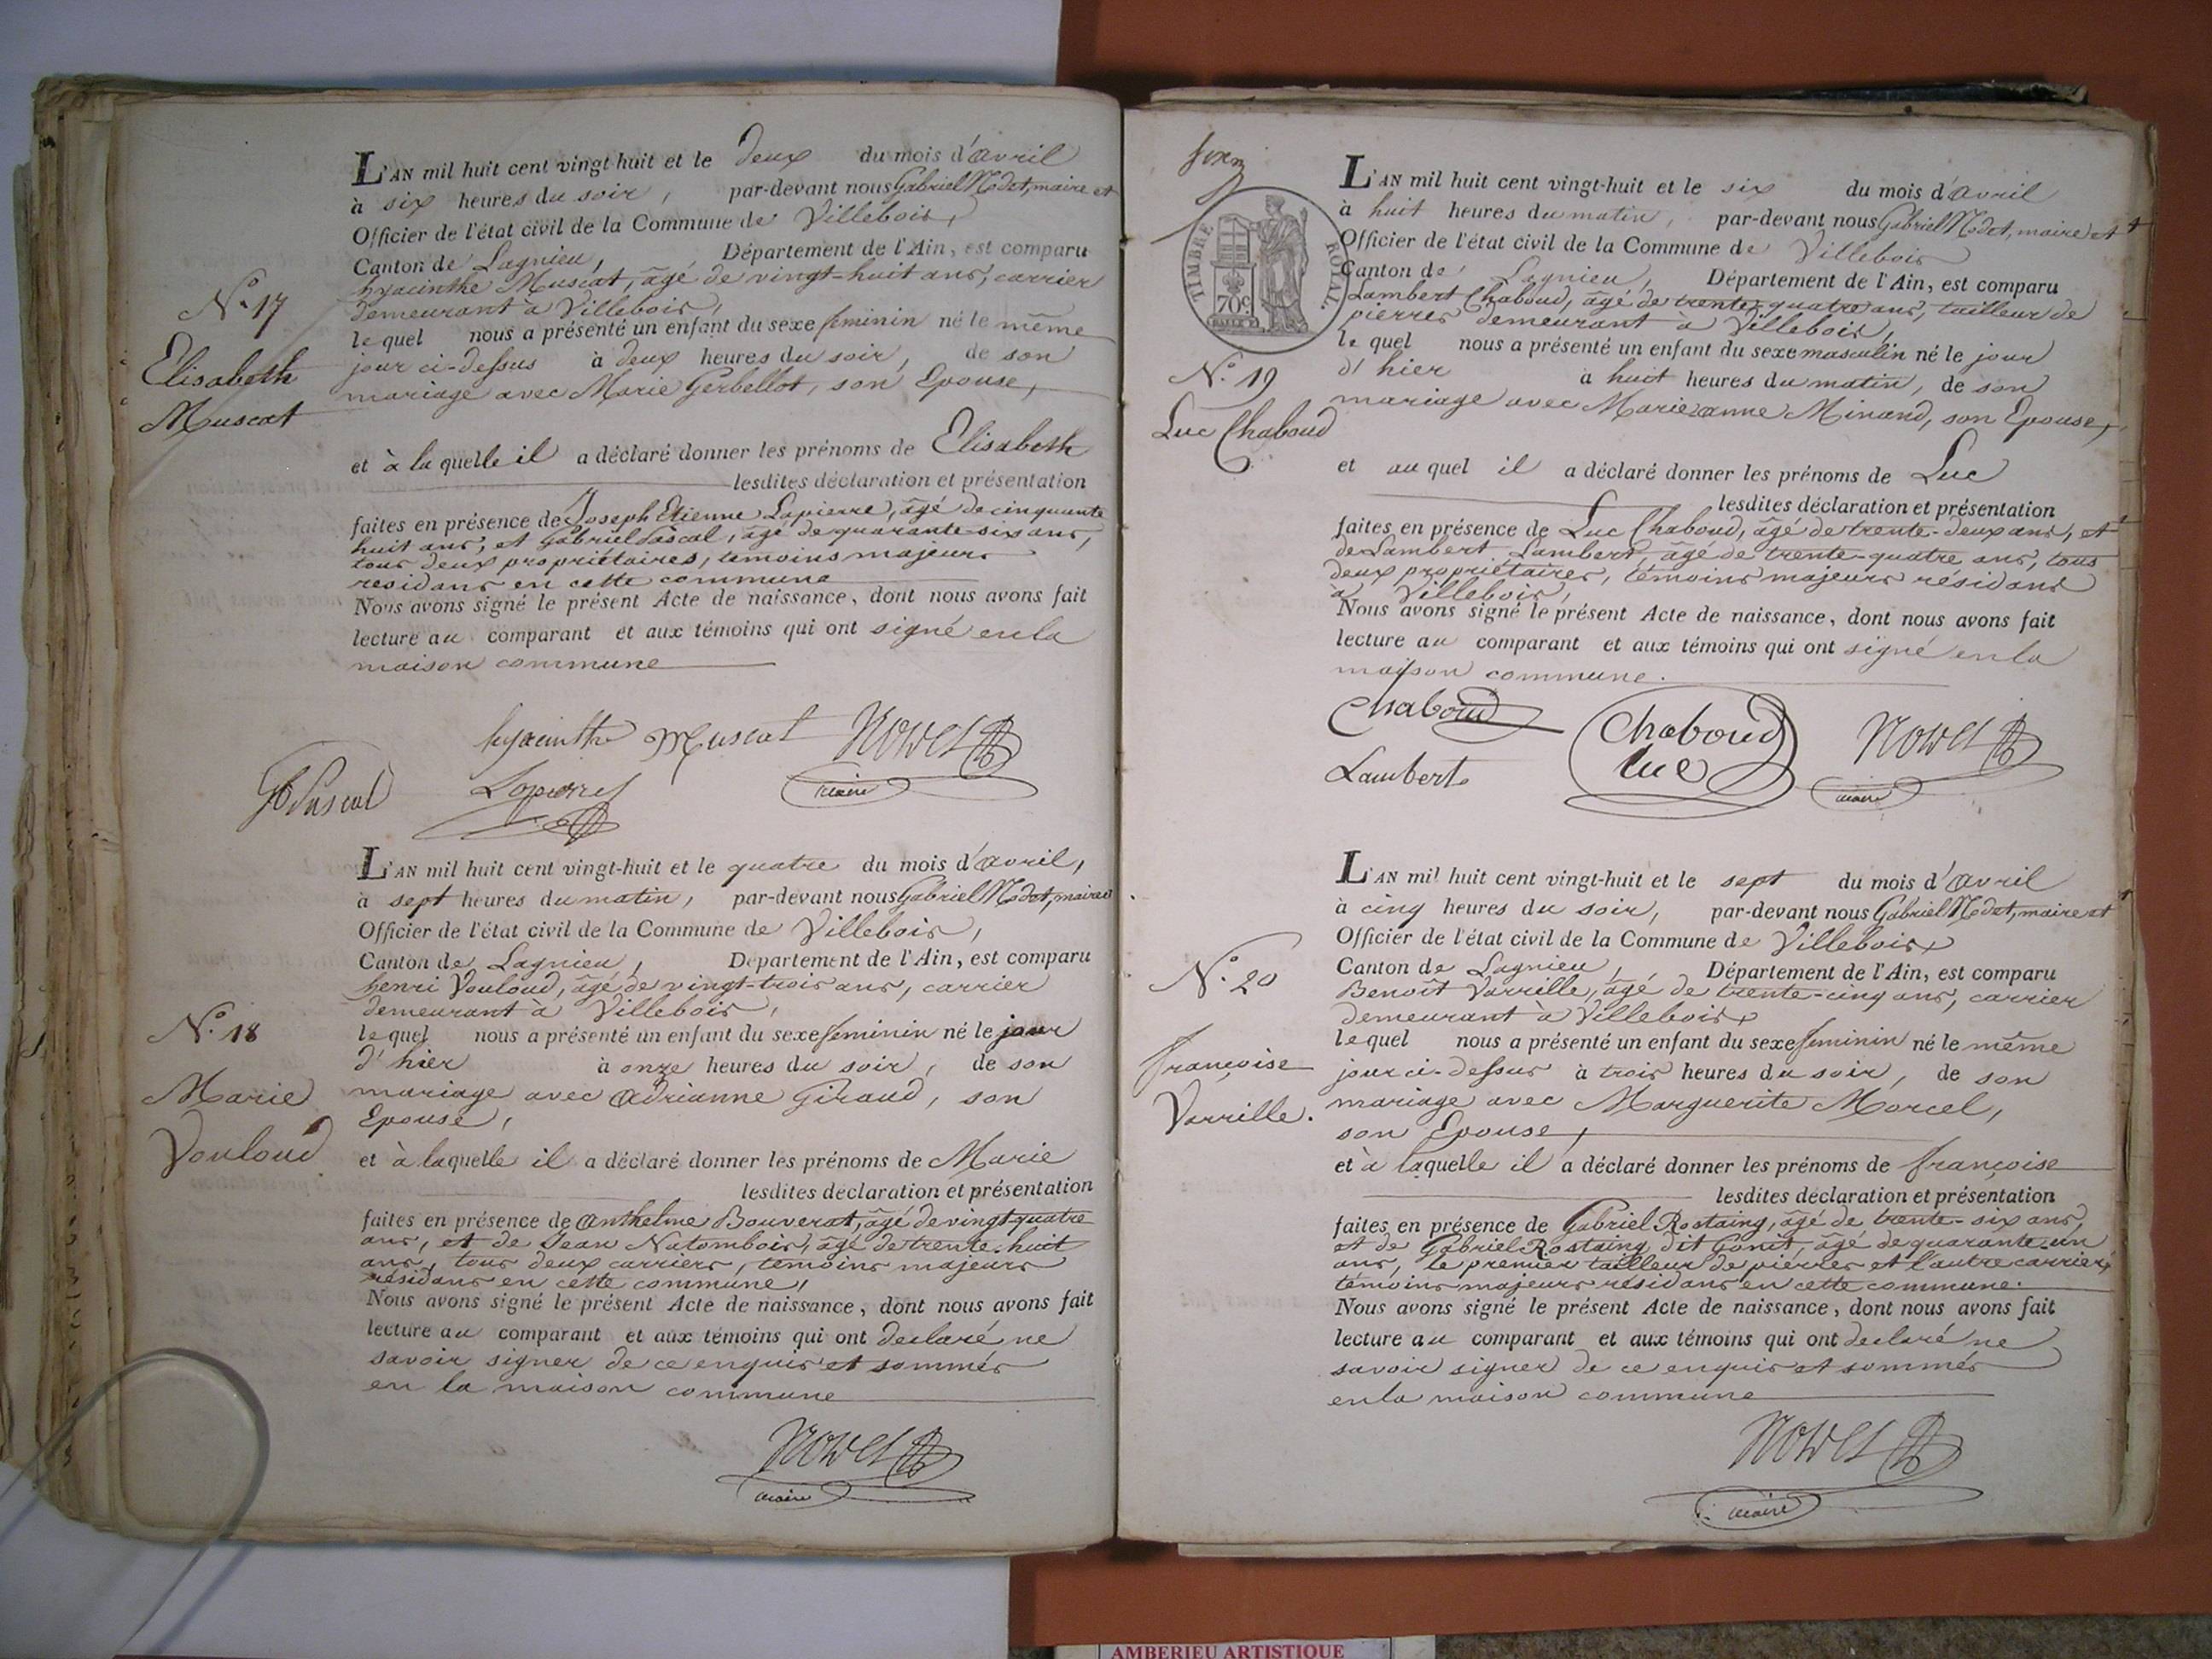 L'AN mil huit cent vingt-huit et le deux du mois d'avril
à six heures du soir, par-devant nous Gabriel Nodet, maire et
Officier de l'état civil de la Commune de Villebois,
Canton de Lagnieu, Département de l'Ain, est comparu
hyacinthe Muscat, âgé de vingt-huit ans, carrier
demeurant à Villebois,
lequel nous a présenté un enfant du sexe feminin né le même
jour ci-dessus à deux heures du soir, de son
mariage avec Marie Gerbellot, son Epouse,
et à laquelle il a déclaré donner les prénoms de Elisabeth
lesdites déclaration et présentation
faites en présence de Joseph Etienne Lapierre, âgé de cinquante
huit ans, et Gabriel Pascal, âgé de quarante-six ans,
tous deux propriétaires, témoins majeurs
residans en cette commune
Nous avons signé le présent Acte de naissance, dont nous avons fait
lecture au comparant et aux témoins qui ont signé en la
maison commune
N.° 17
Elisabeth
Muscat
hyacinthe Muscat Nodet
Gb Pascal Lapierre maire
L'AN mil huit cent vingt-huit et le quatre du mois d'avril,
à sept heures du matin, par-devant nous Gabriel Nodet, maire et
Officier de l'état civil de la Commune de Villebois,
Canton de Lagnieu, Département de l'Ain, est comparu
henri Vouloud, âgé de vingt-trois ans, carrier
demeurant à Villebois,
lequel nous a présenté un enfant du sexe feminin né le jour
d'hier à onze heures du soir, de son
mariage avec Adrianne Giraud, son
Epouse,
et à laquelle il a déclaré donner les prénoms de Marie
lesdites déclaration et présentation
faites en présence de Anthelme Bouverat, âgé de vingt-quatre
ans, et de Jean Natombois, âgé de trente-huit
ans, tous deux carriers, témoins majeurs
résidans en cette commune,
Nous avons signé le présent Acte de naissance, dont nous avons fait
lecture au comparant et aux témoins qui ont declaré ne
savoir signer de ce enquis et sommés
en la maison commune
N.° 18
Marie
Vouloud
Nodet
maire
TIMBRE ROYAL
70c.
L'AN mil huit cent vingt-huit et le six du mois d'avril
à huit heures du matin, par-devant nous Gabriel Nodet, maire et
Officier de l'état civil de la Commune de Villebois
Canton de Lagnieu, Département de l'Ain, est comparu
Lambert Chaboud, âgé de trente-quatre ans, tailleur de
pierres demeurant à Villebois,
lequel nous a présenté un enfant du sexe masculin né le jour
d'hier à huit heures du matin, de son
mariage avec Marie anne Minand, son Epouse,
et auquel il a déclaré donner les prénoms de Luc
lesdites déclaration et présentation
faites en présence de Luc Chaboud, âgé de trente-deux ans, et
de Lambert Lambert, âgé de trente-quatre ans, tous
deux propriétaires, témoins majeurs résidans
à Villebois,
Nous avons signé le présent Acte de naissance, dont nous avons fait
lecture au comparant et aux témoins qui ont signé en la
maison commune.
N.° 19
Luc Chaboud
Chaboud Chaboud Nodet
Lambert Luc maire
L'AN mil huit cent vingt-huit et le sept du mois d'avril
à cinq heures du soir, par-devant nous Gabriel Nodet, maire et
Officier de l'état civil de la Commune de Villebois,
Canton de Lagnieu, Département de l'Ain, est comparu
Benoît Varrille, âgé de trente-cinq ans, carrier
demeurant à Villebois,
lequel nous a présenté un enfant du sexe feminin né le même
jour ci-dessus à trois heures du soir, de son
mariage avec Marguerite Marcel,
son Epouse,
et à laquelle il a déclaré donner les prénoms de françoise
lesdites déclaration et présentation
faites en présence de Gabriel Rostaing, âgé de trente-six ans,
et de Gabriel Rostaing dit Gonit, âgé de quarante-un
ans, le premier tailleur de pierres et l'autre carrier,
témoins majeurs résidans en cette commune.
Nous avons signé le présent Acte de naissance, dont nous avons fait
lecture au comparant et aux témoins qui ont declaré ne
savoir signer de ce enquis et sommés
en la maison commune
N.° 20
françoise
Varrille.
Nodet
maire
AMBERIEU ARTISTIQUE